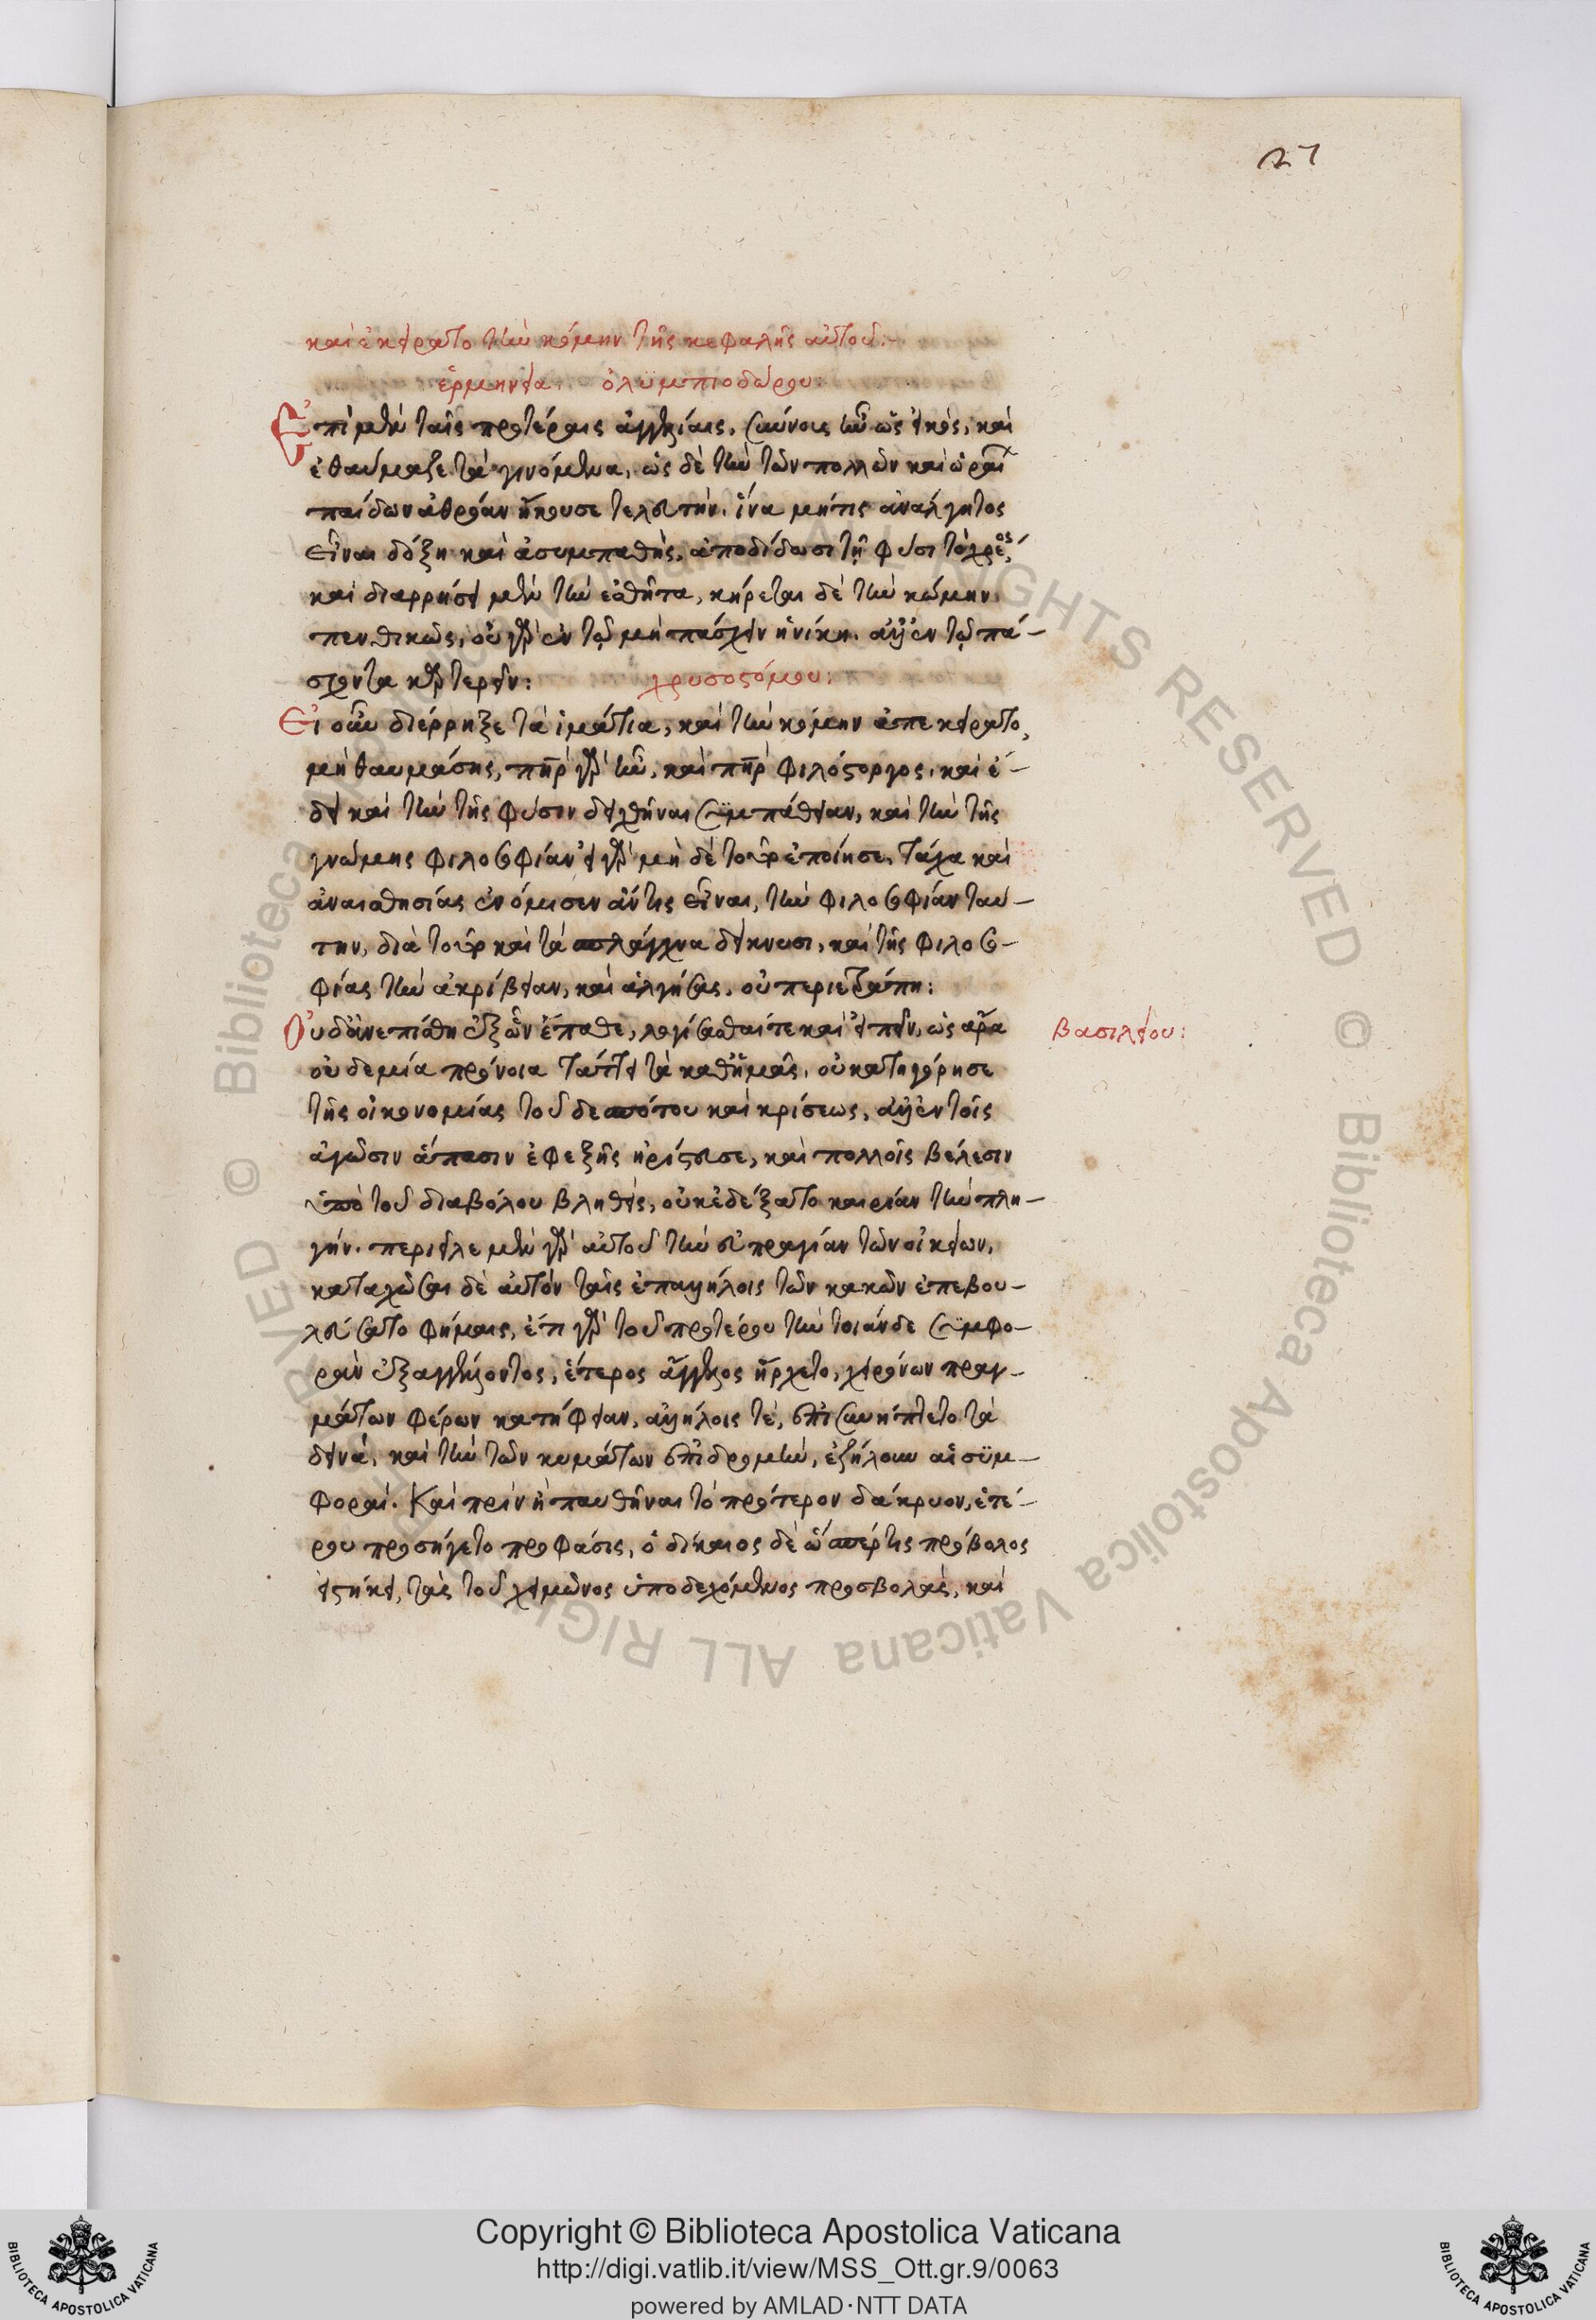 27
καὶ ἐκείρατο τὴν κόμην τῆς κεφαλῆς αὐτοῦ:
ἑρμηνεία. ὀλυμπιοδώρου:
Ἐπὶ μὲν ταῖς προτέραις ἀγγελίαις, σύννους ἦν ὡς εἰκὸς, καὶ
ἐθαύμαζε τὰ γινόμενα, ὡς δὲ τὴν τῶν πολλῶν καὶ ὡραί
παίδων ἀθρόαν ἤκουσε τελευτὴν. ἵνα μήτις ἀνάλγητος
εἶναι δόξῃ καὶ ἀσυμπαθὴς, ἀποδίδωσι τῇ φύσει τὸ χρέος,
καὶ διαρρήσει μὲν τὴν ἐσθῆτα, κήρεται δὲ τὴν κώμην
πενθικῶς, οὐ γὰρ ἐν τῷ μὴ πάσχειν ἡ νίκη. ἀλλ' ἐν τῷ πά-
σχοντα καρτερεῖν: χρυσοστόμου:
Εἰ οὖν διέρρηξε τὰ ἱμάτια, καὶ τὴν κόμην ἀπεκείρατο,
μὴ θαυμάσῃς, πηρ γὰρ ἦν, καὶ πηρ φιλόστοργος. καὶ ἔ-
δει καὶ τὴν τῆς φύσιν δειχθῆναι συμπάθειαν, καὶ τὴν τῆς
γνώμης φιλοσοφίαν εἰ γὰρ μὴ δὲ τοῦτο ἐποίησε, τάχα καὶ
ἀναισθησίας ἐνόμισεν ἄν τις εἶναι, τὴν φιλοσοφίαν ταύ-
την, διὰ τοῦτο καὶ τὰ σπλάγχνα δείκνυσι, καὶ τῆς φιλοσο-
φίας τὴν ἀκρίβειαν, καὶ ἀλγήσας, οὐ περιετράπη:
Οὐδ' ἀνεπίσθη ἐξ ὧν ἔπαθε, λογίσασθαί τε καὶ εἰπεῖν, ὡς ἄρα
βασιλείου:
οὐδεμία πρόνοια τάττει τὰ καθ' ἡμᾶς, οὐ κατηγόρησε
τῆς οἰκονομίας τοῦ δεσπότου καὶ κρίσεως, ἀλλ' ἐν τοῖς
ἀγῶσιν ἅπασιν ἐφεξῆς ἠρίστευσε, καὶ πολλοῖς βέλεσιν
ὑπὸ τοῦ διαβόλου βληθεὶς, οὐκ ἐδέξατο καιρίαν τὴν πλη-
γήν. περιεῖλε μὲν γὰρ αὐτοῦ τὴν εὐπραγίαν τῶν οἰκείων,
καταχῶσαι δὲ αὐτὸν ταῖς ἐπαλλήλοις τῶν κακῶν ἐπεβου-
λεύσατο φήμαις, ἔτι γὰρ τοῦ προτέρου τὴν τοιάνδε συμφο-
ρὰν ἐξαγγέλλοντος, ἕτερος ἄγγελος ἤρχετο, χειρόνων πραγ-
μάτων φέρων κατήφειαν, ἀλλήλοις τὲ, ἐπισυνήπτετο τὰ
δεινά, καὶ τὴν τῶν κυμάτων ἐπιδρομὴν, ἐζήλουν αἱ συμ-
φοραί. Καὶ πρὶν ἢ παυθῆναι τὸ πρότερον δάκρυον, ἑτέ-
ρου προσήγετο προφάσις, ὁ δίκαιος δὲ ὥσπέρ τις πρόβολος
εἱστήκει, τὰς τοῦ χειμῶνος ὑποδεχόμενος προσβολάς, καὶ
Copyright © Biblioteca Apostolica Vaticana
http://digi.vatlib.it/view/MSS_Ott.gr.9/0063
powered by AMLAD·NTT DATA
BIBLIOTECA APOSTOLICA VATICANA
BIBLIOTECA APOSTOLICA VATICANA
© Biblioteca Apostolica Vaticana ALL RIGHTS RESERVED